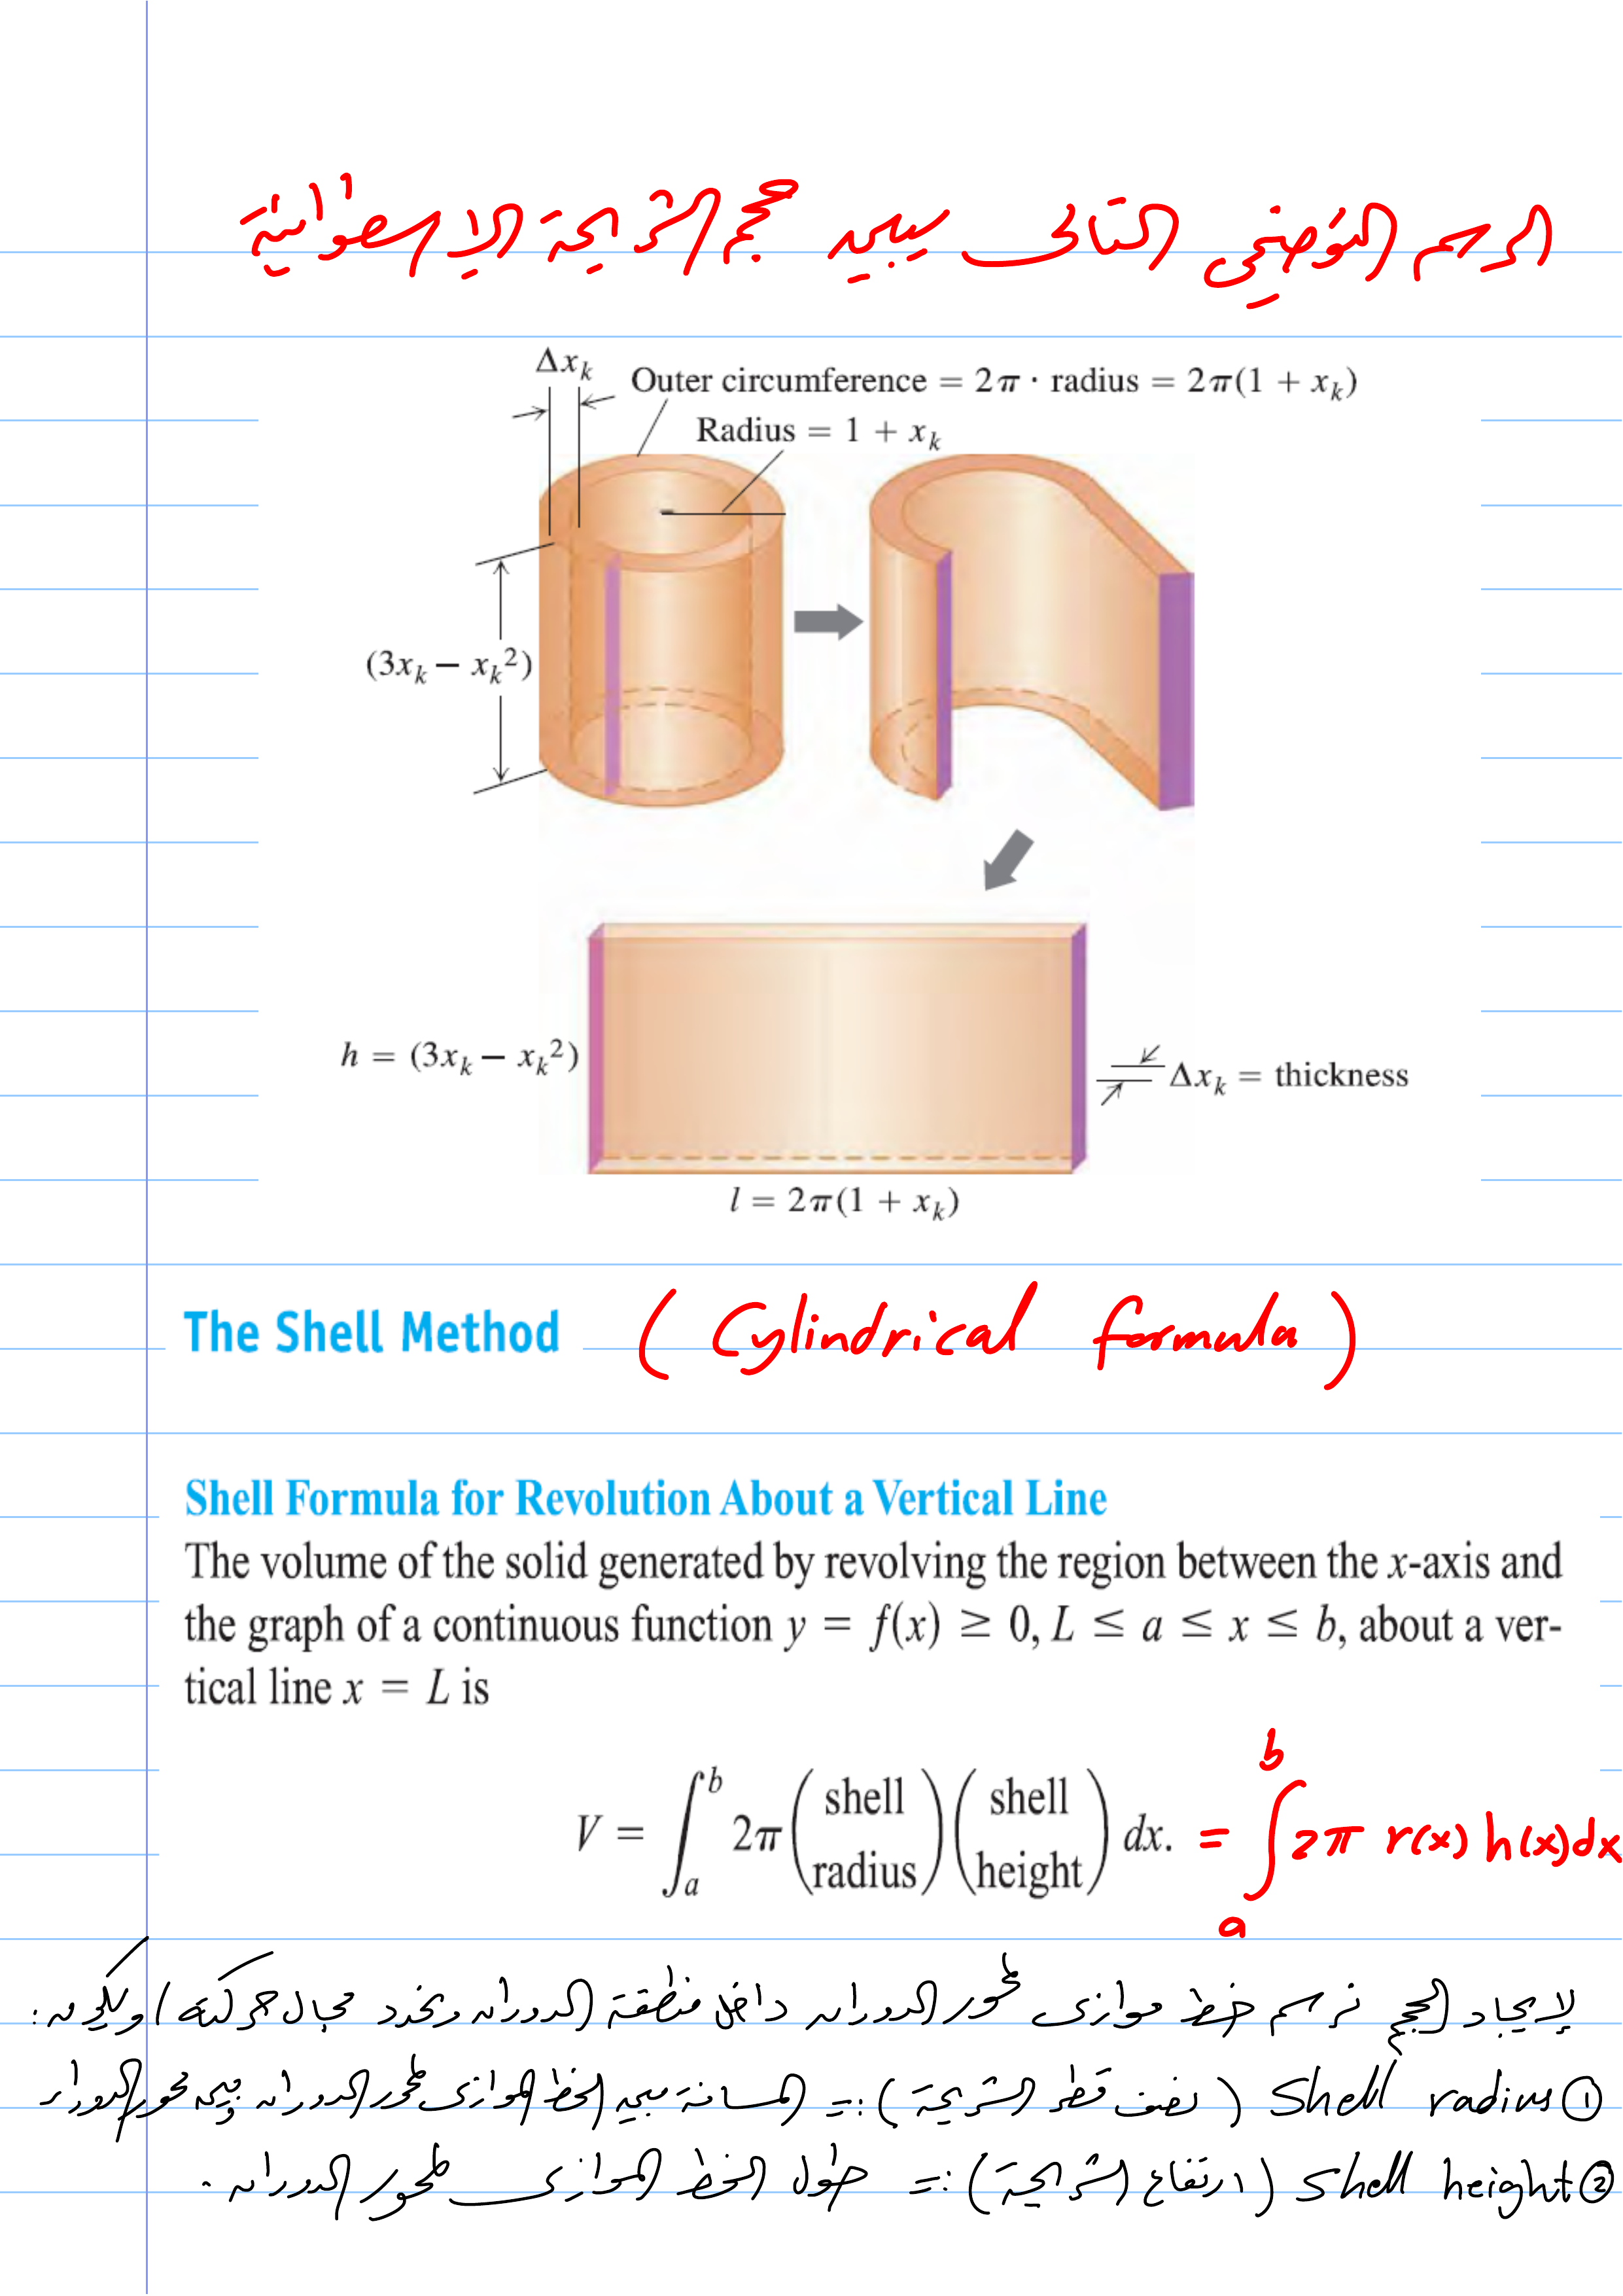 الرسم التوضيحي التالى يبين حجم الشريحة الاسطوانية
Δxₖ
Outer circumference = 2π · radius = 2π(1 + xₖ)
Radius = 1 + xₖ
(3xₖ − xₖ²)
h = (3xₖ − xₖ²)
Δxₖ = thickness
l = 2π(1 + xₖ)
The Shell Method ( Cylindrical formula )
Shell Formula for Revolution About a Vertical Line
The volume of the solid generated by revolving the region between the x-axis and
the graph of a continuous function y = f(x) ≥ 0, L ≤ a ≤ x ≤ b, about a ver-
tical line x = L is
V = ∫ₐᵇ 2π (shell radius) (shell height) dx. = ∫ₐᵇ 2π r(x) h(x) dx
لإيجاد الحجم نرسم خط موازى لمحور الدوران داخل منطقة الدوران ونحدد مجال حركته) ويكون:
① Shell radius ( نصف قطر الشريحة ) := المسافة بين الخط الموازى لمحور الدوران وبين محور الدوران
② Shell height ( ارتفاع الشريحة ) := طول الخط الموازى لمحور الدوران.